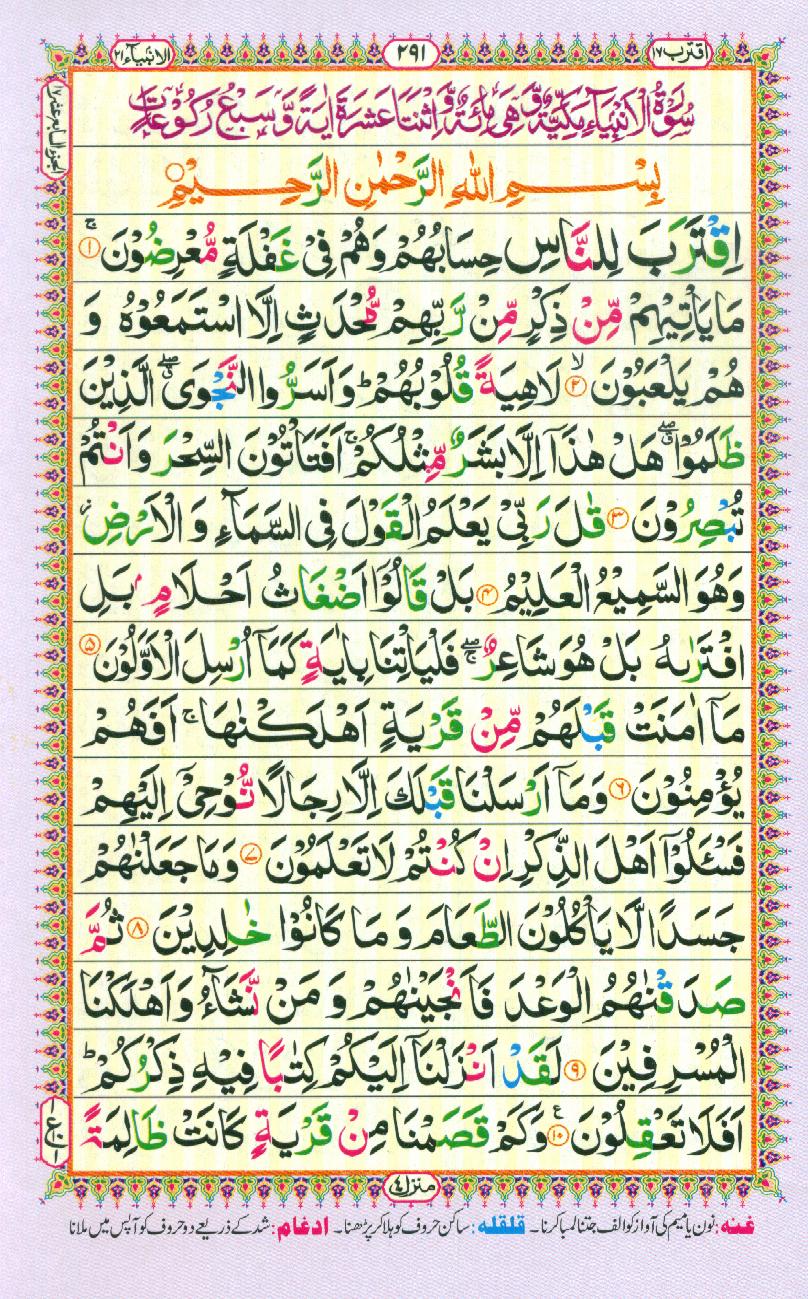 اقترب ١٧
٢٩١
الانبیآء ٢١
الجزء السابع عشر ١٧
سُوْرَةُ الْاَنْۢبِیَآءِ مَكِّیَّةٌ وَّ هِیَ مِائَةٌ وَّ اثْنَتَا عَشَرَةَ اٰیَةً وَّ سَبْعُ رُكُوْعَاتٍ
بِسْمِ اللهِ الرَّحْمٰنِ الرَّحِیْمِ
اِقْتَرَبَ لِلنَّاسِ حِسَابُهُمْ وَهُمْ فِیْ غَفْلَةٍ مُّعْرِضُوْنَ ۚ ١
مَا یَاْتِیْهِمْ مِّنْ ذِكْرٍ مِّنْ رَّبِّهِمْ مُّحْدَثٍ اِلَّا اسْتَمَعُوْهُ وَ
هُمْ یَلْعَبُوْنَ ۙ ٢ لَاهِیَةً قُلُوْبُهُمْ ؕ وَ اَسَرُّوا النَّجْوَی ۖۗ الَّذِیْنَ
ظَلَمُوْا ۖۗ هَلْ هٰذَاۤ اِلَّا بَشَرٌ مِّثْلُكُمْ ۚ اَفَتَاْتُوْنَ السِّحْرَ وَ اَنْتُمْ
تُبْصِرُوْنَ ٣ قٰلَ رَبِّیْ یَعْلَمُ الْقَوْلَ فِی السَّمَآءِ وَ الْاَرْضِ ؗ
وَهُوَ السَّمِیْعُ الْعَلِیْمُ ٤ بَلْ قَالُوْۤا اَضْغَاثُ اَحْلَامٍۭ بَلِ
افْتَرٰىهُ بَلْ هُوَ شَاعِرٌ ۖۚ فَلْیَاْتِنَا بِاٰیَةٍ كَمَاۤ اُرْسِلَ الْاَوَّلُوْنَ ٥
مَاۤ اٰمَنَتْ قَبْلَهُمْ مِّنْ قَرْیَةٍ اَهْلَكْنٰهَا ۚ اَفَهُمْ
یُؤْمِنُوْنَ ٦ وَ مَاۤ اَرْسَلْنَا قَبْلَكَ اِلَّا رِجَالًا نُّوْحِیْۤ اِلَیْهِمْ
فَسْـَٔلُوْۤا اَهْلَ الذِّكْرِ اِنْ كُنْتُمْ لَا تَعْلَمُوْنَ ٧ وَ مَا جَعَلْنٰهُمْ
جَسَدًا لَّا یَاْكُلُوْنَ الطَّعَامَ وَ مَا كَانُوْا خٰلِدِیْنَ ٨ ثُمَّ
صَدَقْنٰهُمُ الْوَعْدَ فَاَنْجَیْنٰهُمْ وَ مَنْ نَّشَآءُ وَ اَهْلَكْنَا
الْمُسْرِفِیْنَ ٩ لَقَدْ اَنْزَلْنَاۤ اِلَیْكُمْ كِتٰبًا فِیْهِ ذِكْرُكُمْ ؕ
اَفَلَا تَعْقِلُوْنَ ١٠ ع وَ كَمْ قَصَمْنَا مِنْ قَرْیَةٍ كَانَتْ ظَالِمَةً
منزل ٤
غنه: نون یا میم کی آواز کو الف جتنا لمبا کرنا۔ قلقله: ساکن حروف کو ہلا کر پڑھنا۔ ادغام: شد کے ذریعے دو حروف کو آپس میں ملانا